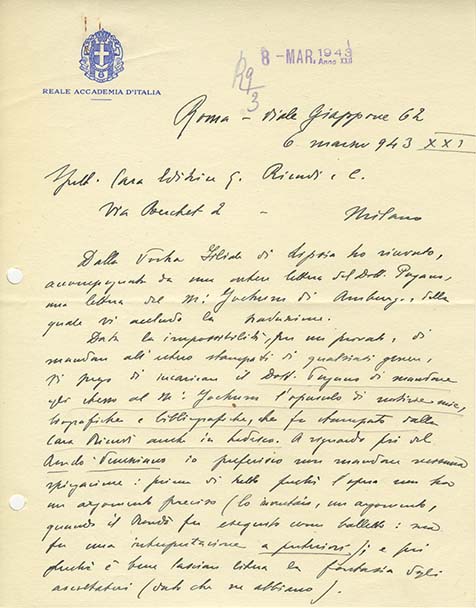 REALE ACCADEMIA D'ITALIA
8 - MAR. 1943
Anno XXI
R 9/3
Roma - Viale Giappone 62
6 marzo 943 XXI
Spett. Casa Editrice G. Ricordi e C.
Via Berchet 2 - Milano
Dalla Vostra Filiale di Lipsia ho ricevuto,
accompagnata da una lettera del Dott. Pagano,
una lettera del M° Jochum di Amburgo, della
quale vi accludo la traduzione.
Data la impossibilità, per un privato, di
mandare all'estero stampati di qualsiasi genere,
Vi prego di incaricare il Dott. Pagano di mandare
egli stesso al M° Jochum l'opuscolo di notizie bio-
grafiche e bibliografiche, che fu stampato dalla
Casa Ricordi anche in tedesco. A riguardo poi del
Rondò Veneziano io preferisco non mandare nessuna
spiegazione: prima di tutto perchè l'opera non ha
un argomento preciso (lo inventai, un argomento,
quando il Rondò fu eseguito come balletto: ma
fu una interpretazione a posteriori); e poi
perchè è bene lasciar libera la fantasia degli
ascoltatori (dato che ne abbiano).